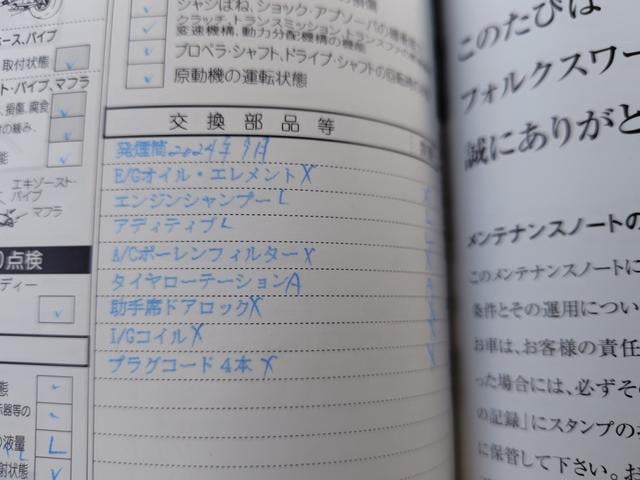 シャシばね、ショック・アブソーバの
クラッチ、トランスミッション、トランスファの
変速機構、動力分配機構の機能
プロペラ・シャフト、ドライブ・シャフトの
原動機の運転状態
交換部品等
発煙筒2024年9月
E/Gオイル・エレメントX
エンジンシャンプーL
アディティブL
A/CポーレンフィルターX
タイヤローテーションA
助手席ドアロックX
I/GコイルX
プラグコード4本X
ース、パイプ
取付状態
ト・パイプ、マフラ
損傷、腐食
の緩み、
能
エキゾースト・
パイプ
マフラ
点検
ディー
態
示器等の
の液量
L
射状態
このたびは
フォルクスワー
誠にありがと
メンテナンスノートの
このメンテナンスノートに
条件とその運用につい
お車は、お客様の責任
った場合には、必ずその
の記録」にスタンプの
に保管して下さい。お